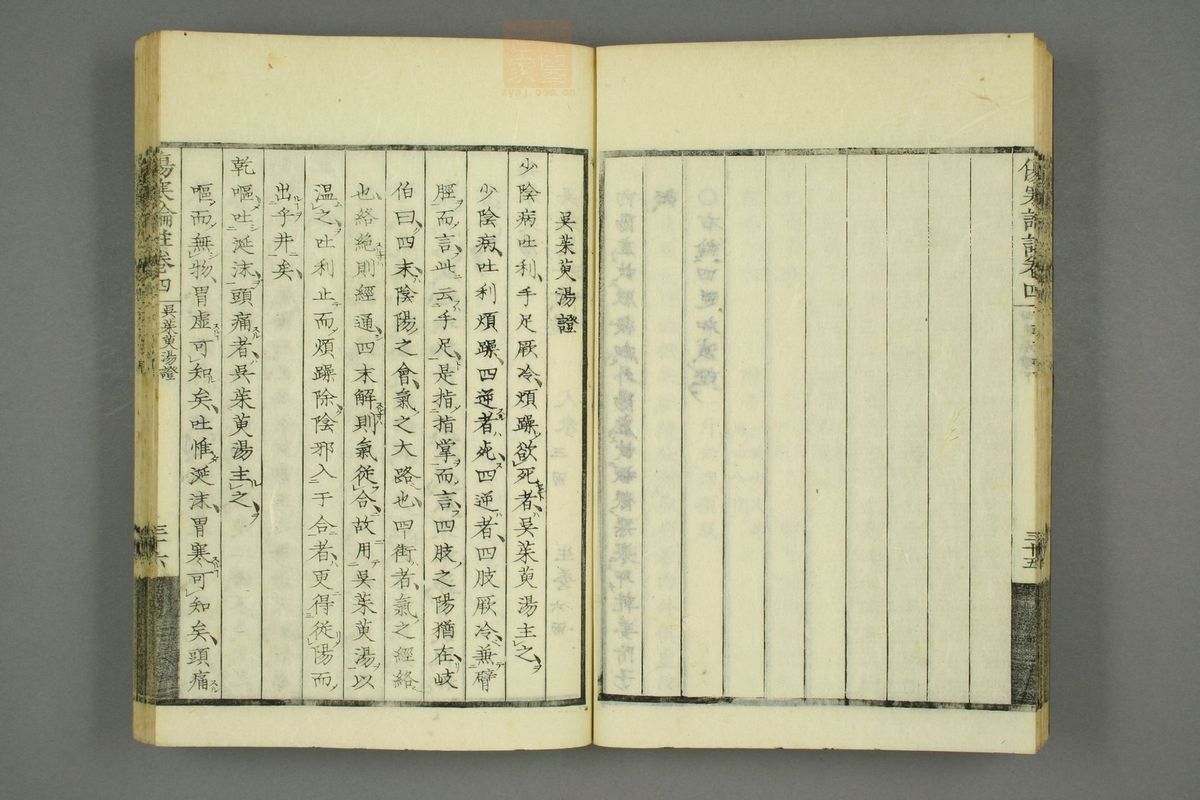 傷寒論註卷四
三十五
吳茱萸湯證
少陰病吐利手足厥冷煩躁欲死者吳茱萸湯主之
少陰病吐利煩躁四逆者死四逆者四肢厥冷兼臂
脛而言此云手足是指指掌而言四肢之陽猶在岐
伯曰四末陰陽之會氣之大路也四街者氣之經絡
也絡絕則經通四末解則氣從合故用吳茱萸湯以
温之吐利止而煩躁除陰邪入于合者更得從陽而
出乎井矣
乾嘔吐涎沫頭痛者吳茱萸湯主之
嘔而無物胃虛可知矣吐惟涎沫胃寒可知矣頭痛
傷寒論註卷四
吳茱萸湯證
三十六
zysj.com.cn